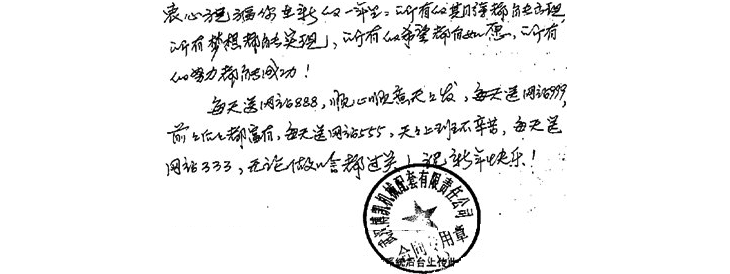 衷心祝福你在新的一年里:所有的期待都能出现
所有梦想都能实现,所有的希望都能如愿,所有
的努力都能成功!
每天送网站888,顺心顺意天上发,每天送网站999,
前上位上都富有,每天送网站555,天天上班不辛苦,每天送
网站333,无论做啥都过关!祝新年快乐!
博凯机械配套有限责任公司
合同专用章
系统后台上传